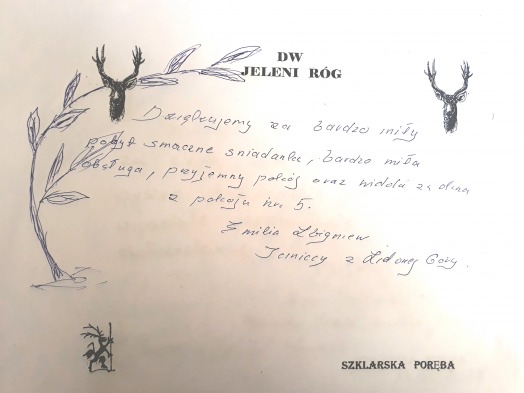 DW
JELENI RÓG
Dziękujemy za bardzo miły
pobyt smaczne śniadanka, bardzo miła
obsługa, przyjemny pokój oraz widok za okna
z pokoju nr 5.
Emilia Zbigniew
z Góry.
SZKLARSKA PORĘBA